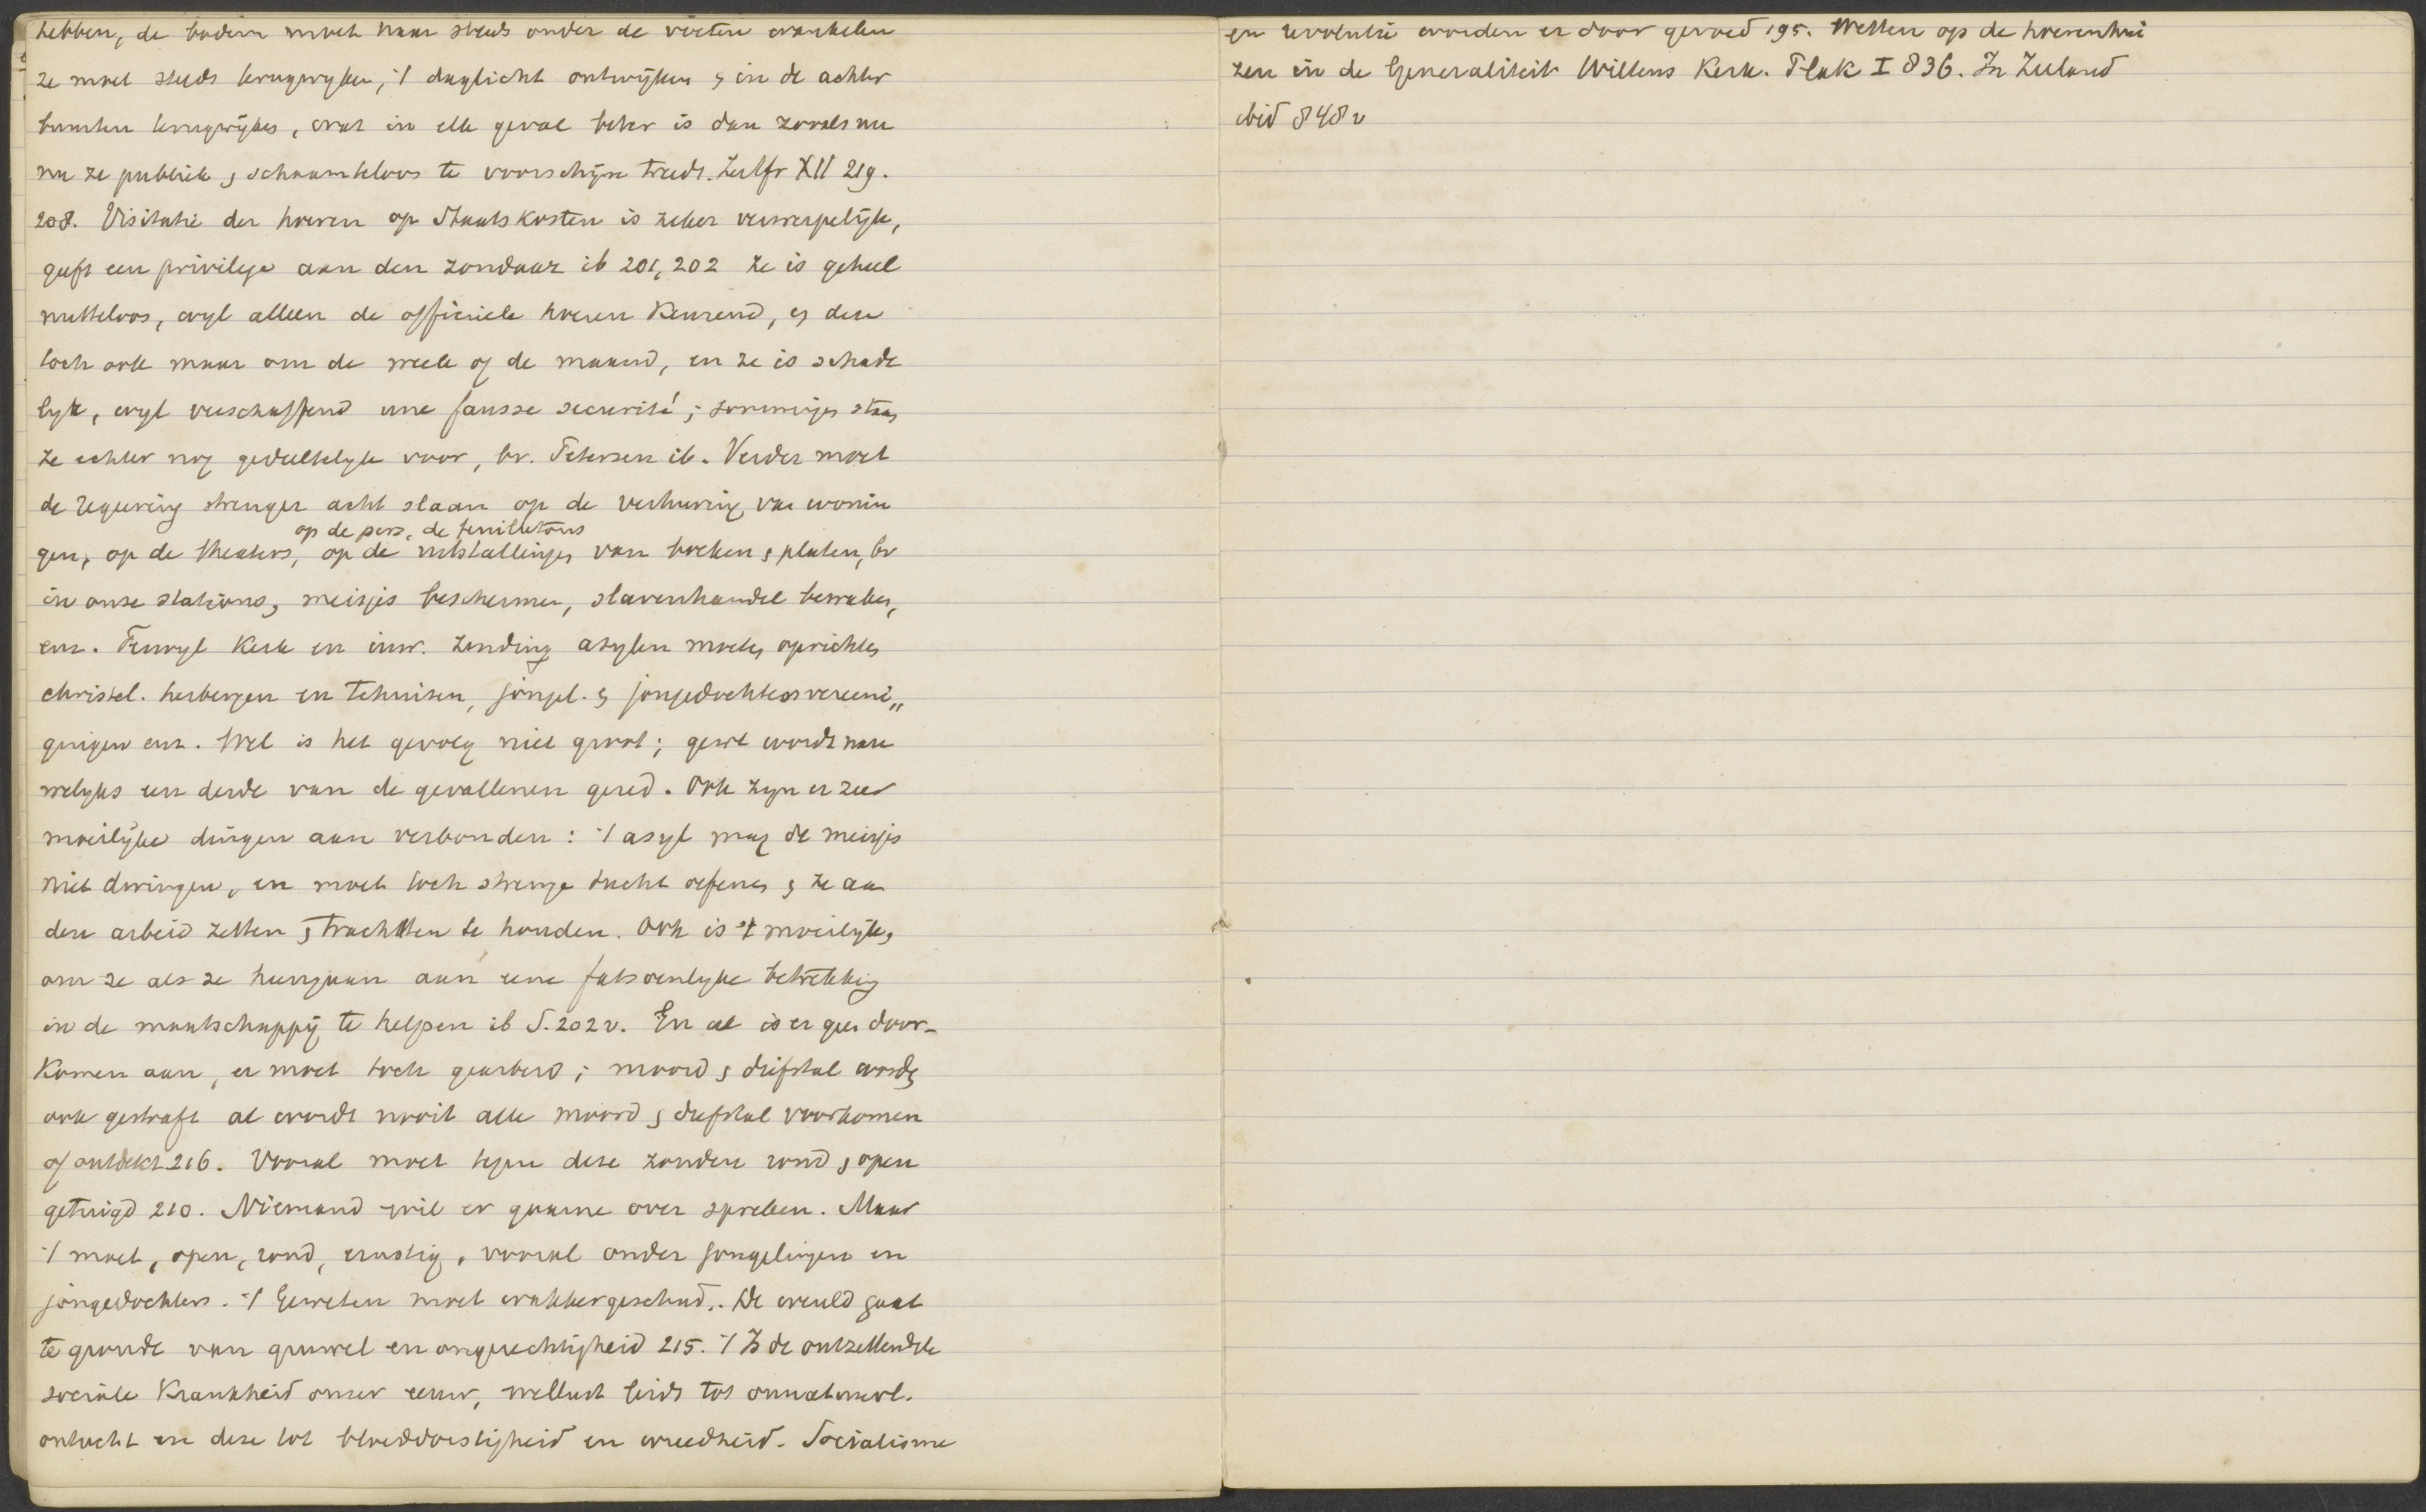 hebben, de bodem moet haar steeds onder de voeten wankelen
ze moet steeds terugwyken, 't daglicht ontwijken & in de achter
buurten terugwijken, wat in elk geval beter is dan zooals nu
nu ze publiek & schaamteloos te voorschijn treedt. Zeitfr XII 219.
208. Visitatie der hoeren op Staatskosten is zeker verwerpelijk,
geeft een privilege aan den zondaar ib 201, 202 Ze is geheel
nutteloos, wyl alleen de officieele hoeren keurend, & deze
toch ook maar om de week of de maand, en ze is schade
lyk, wyl verschaffend une fausse securité; sommigen staan
ze echter nog gedeeltelyk voor, bv. Petersen ib. Verder moet
de regeering strenger acht slaan op de verhuring van wonin
op de pers, de feuilletons
gen, op de theaters, op de uitstallingen van boeken & platen, bv
in onze stations, meisjes beschermen, slavenhandel bewaken,
enz. Terwyl Kerk en inw. Zending asylen moeten oprichten
christel. herbergen en tehuizen, jongel. & jongedochtersvereeni„
gingen enz. Wel is het gevolg niet groot; gered wordt nau
welyks een derde van de gevallenen gered. Ook zyn er zeer
moeilijke dingen aan verbonden: 't asyl mag de meisjes
niet dwingen, en moet toch strenge tucht oefenen & ze aan
den arbeid zetten & trachtten te houden. Ook is 't moeilijk,
om ze als ze heengaan aan eene fatsoenlyke betrekking
in de maatschappij te helpen ib S. 202 v. En al is er geen door-
komen aan, er moet toch gearbeid; moord & diefstal wordt
ook gestraft al wordt nooit alle moord & diefstal voorkomen
of ontdekt 216. Vooral moet tegen deze zonden rond & open
getuigd 210. Niemand wil er gaarne over spreken. Maar
't moet, open, rond, ernstig, vooral onder jongelingen en
jongedochters. 't Geweten moet wakkergeschud. De wereld gaat
te gronde van gruwel en ongerechtigheid 215. 't Is de ontzettendste
sociale Krankheid onzer eeuw, wellust leidt tot onnatuurl.
ontucht en deze tot bloeddorstigheid en wreedheid. Socialisme
en revolutie worden er door gevoed 195. Wetten op de hoerenhui
zen in de Generaliteit Wiltens Kerk. Plak I 836. In Zeeland
ibid 848 v